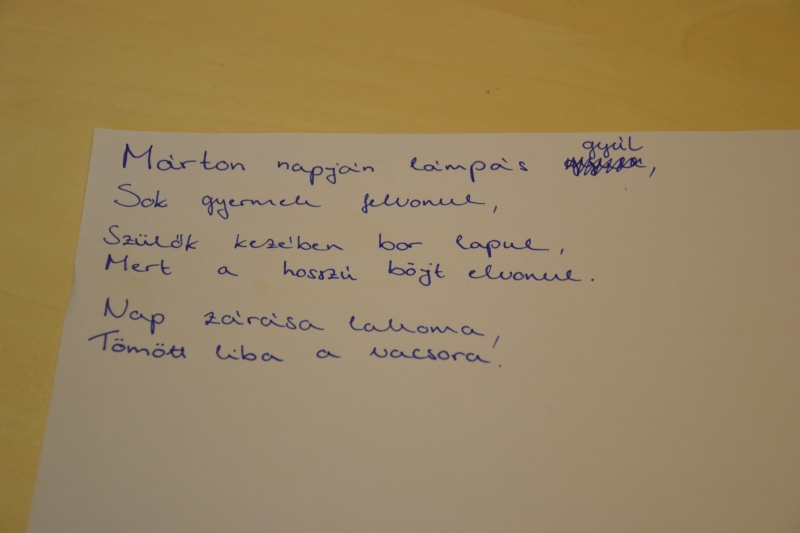 Márton napján lámpás gyúl,
Sok gyermek felvonul,
Szülők kezében bor lapul,
Mert a hosszú böjt elvonul.
Nap zárása lakoma,
Tömött liba a vacsora.